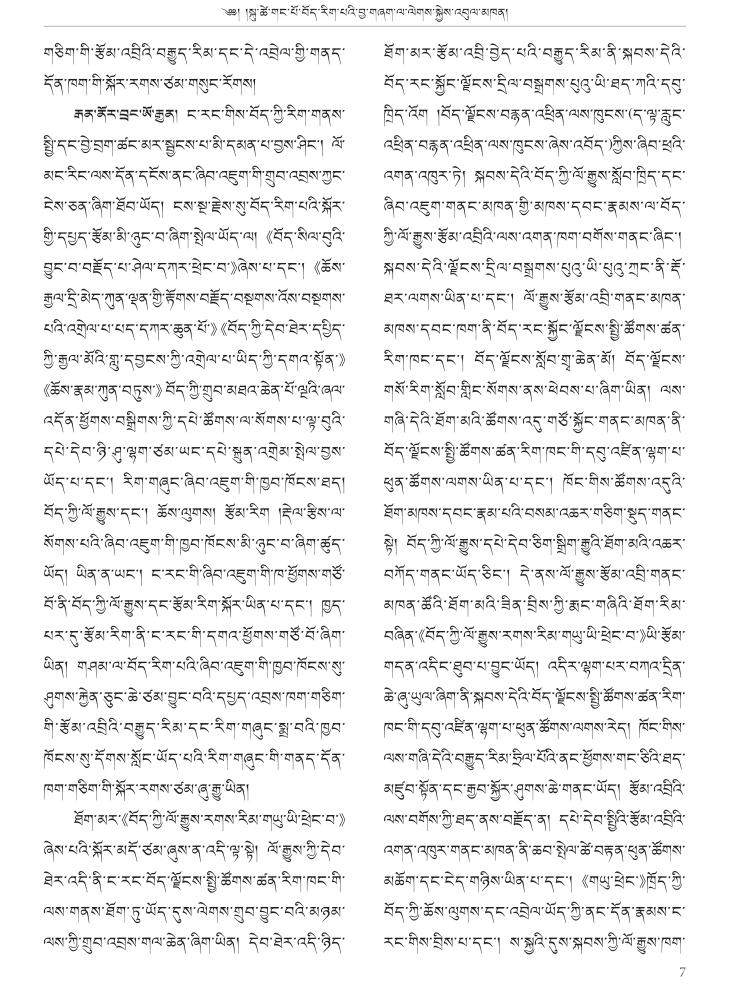 ༄༅། །སྐུ་ཚེ་གང་པོ་བོད་རིག་པའི་བྱ་གཞག་ལ་ལེགས་སྐྱེས་འབུལ་མཁན།
གཅིག་གི་རྩོམ་འབྲིའི་བརྒྱུད་རིམ་དང་དེ་འབྲེལ་གྱི་གནད་
དོན་ཁག་གི་སྐོར་རགས་ཙམ་གསུང་རོགས།
རྒན་ནོར་བྲང་ཨོ་རྒྱན། ང་རང་གིས་བོད་ཀྱི་རིག་གནས་
སྤྱི་དང་བྱེ་བྲག་ཚང་མར་སྦྱངས་པ་མི་དམན་པ་བྱས་ཤིང་། ལོ་
མང་རིང་ལས་དོན་དངོས་ནང་ཞིབ་འཇུག་གི་གྲུབ་འབྲས་ཀྱང་
ངེས་ཅན་ཞིག་ཐོབ་ཡོད། ངས་སྔ་རྗེས་སུ་བོད་རིག་པའི་སྐོར་
གྱི་དཔྱད་རྩོམ་མི་ཉུང་བ་ཞིག་སྤེལ་ཡོད་ལ། 《བོད་སིལ་བུའི་
བྱུང་བ་བརྗོད་པ་ཤེལ་དཀར་ཕྲེང་བ་》ཞེས་པ་དང་། 《ཆོས་
རྒྱལ་དྲི་མེད་ཀུན་ལྡན་གྱི་རྟོགས་བརྗོད་བསྔགས་འོས་བསྔགས་
པའི་འགྲེལ་པ་པད་དཀར་ཆུན་པོ་》《བོད་ཀྱི་དེབ་ཐེར་དཔྱིད་
ཀྱི་རྒྱལ་མོའི་གླུ་དབྱངས་ཀྱི་འགྲེལ་པ་ཡིད་ཀྱི་དགའ་སྟོན་》
《ཆོས་རྣམ་ཀུན་བཏུས་》བོད་ཀྱི་གྲུབ་མཐའ་ཆེན་པོ་ལྔའི་ཞལ་
འདོན་ཕྱོགས་བསྒྲིགས་ཀྱི་དཔེ་ཚོགས་ལ་སོགས་པ་ལྟ་བུའི་
དཔེ་དེབ་ཉི་ཤུ་ལྷག་ཙམ་ཡང་དཔེ་སྐྲུན་འགྲེམ་སྤེལ་བྱས་
ཡོད་པ་དང་། རིག་གཞུང་ཞིབ་འཇུག་གི་ཁྱབ་ཁོངས་ཐད།
བོད་ཀྱི་ལོ་རྒྱུས་དང་། ཆོས་ལུགས། རྩོམ་རིག །རྡེལ་རྩིས་ལ་
སོགས་པའི་ཞིབ་འཇུག་གི་ཁྱབ་ཁོངས་མི་ཉུང་བ་ཞིག་ཚུད་
ཡོད། ཡིན་ན་ཡང་། ང་རང་གི་ཞིབ་འཇུག་གི་ཁ་ཕྱོགས་གཙོ་
བོ་ནི་བོད་ཀྱི་ལོ་རྒྱུས་དང་རྩོམ་རིག་སྐོར་ཡིན་པ་དང་། ཁྱད་
པར་དུ་རྩོམ་རིག་ནི་ང་རང་གི་དགའ་ཕྱོགས་གཙོ་བོ་ཞིག་
ཡིན། གཤམ་ལ་བོད་རིག་པའི་ཞིབ་འཇུག་གི་ཁྱབ་ཁོངས་སུ་
ཤུགས་རྐྱེན་ཅུང་ཆེ་ཙམ་བྱུང་བའི་དཔྱད་འབྲས་ཁག་གཅིག་
གི་རྩོམ་འབྲིའི་བརྒྱུད་རིམ་དང་རིག་གཞུང་སྨྲ་བའི་ཁྱབ་
ཁོངས་སུ་དོགས་སློང་ཡོད་པའི་རིག་གཞུང་གི་གནད་དོན་
ཁག་གཅིག་གི་སྐོར་རགས་ཙམ་ཞུ་རྒྱུ་ཡིན།
ཐོག་མར་《བོད་ཀྱི་ལོ་རྒྱུས་རགས་རིམ་གཡུ་ཡི་ཕྲེང་བ་》
ཞེས་པའི་སྐོར་མདོ་ཙམ་ཞུས་ན་འདི་ལྟ་སྟེ། ལོ་རྒྱུས་ཀྱི་དེབ་
ཐེར་འདི་ནི་ང་རང་བོད་ལྗོངས་སྤྱི་ཚོགས་ཚན་རིག་ཁང་གི་
ལས་གནས་ཐོག་ཏུ་ཡོད་དུས་ལེགས་གྲུབ་བྱུང་བའི་མཉམ་
ལས་ཀྱི་གྲུབ་འབྲས་གལ་ཆེན་ཞིག་ཡིན། དེབ་ཐེར་འདི་ཉིད་
ཐོག་མར་རྩོམ་འབྲི་བྱེད་པའི་བརྒྱུད་རིམ་ནི་སྐབས་དེའི་
བོད་རང་སྐྱོང་ལྗོངས་དྲིལ་བསྒྲགས་པུའུ་ཡི་ཐད་ཀའི་དབུ་
ཁྲིད་འོག །བོད་ལྗོངས་བརྙན་འཕྲིན་ལས་ཁུངས་(ད་ལྟ་རླུང་
འཕྲིན་བརྙན་འཕྲིན་ལས་ཁུངས་ཞེས་འབོད་)ཀྱིས་ཞིབ་ཕྲའི་
འགན་འཁུར་ཏེ། སྐབས་དེའི་བོད་ཀྱི་ལོ་རྒྱུས་སློབ་ཁྲིད་དང་
ཞིབ་འཇུག་གནང་མཁན་གྱི་མཁས་དབང་རྣམས་ལ་བོད་
ཀྱི་ལོ་རྒྱུས་རྩོམ་འབྲིའི་ལས་འགན་ཁག་བགོས་གནང་ཞིང་།
སྐབས་དེའི་ལྗོངས་དྲིལ་བསྒྲགས་པུའུ་ཡི་པུའུ་ཀྲང་ནི་རྡོ་
ཐར་ལགས་ཡིན་པ་དང་། ལོ་རྒྱུས་རྩོམ་འབྲི་གནང་མཁན་
མཁས་དབང་ཁག་ནི་བོད་རང་སྐྱོང་ལྗོངས་སྤྱི་ཚོགས་ཚན་
རིག་ཁང་དང་། བོད་ལྗོངས་སློབ་གྲྭ་ཆེན་མོ། བོད་ལྗོངས་
གསོ་རིག་སློབ་གླིང་སོགས་ནས་ཕེབས་པ་ཞིག་ཡིན། ལས་
གཞི་དེའི་ཐོག་མའི་ཚོགས་འདུ་གཙོ་སྐྱོང་གནང་མཁན་ནི་
བོད་ལྗོངས་སྤྱི་ཚོགས་ཚན་རིག་ཁང་གི་དབུ་འཛིན་ལྷག་པ་
ཕུན་ཚོགས་ལགས་ཡིན་པ་དང་། ཁོང་གིས་ཚོགས་འདུའི་
ཐོག་མཁས་དབང་རྣམ་པའི་བསམ་འཆར་གཅིག་སྡུད་གནང་
སྟེ། བོད་ཀྱི་ལོ་རྒྱུས་དཔེ་དེབ་ཅིག་སྒྲིག་རྒྱུའི་ཐོག་མའི་འཆར་
བཀོད་གནང་ཡོད་ཅིང་། དེ་ནས་ལོ་རྒྱུས་རྩོམ་འབྲི་གནང་
མཁན་ཚོའི་ཐོག་མའི་ཟིན་བྲིས་ཀྱི་རྨང་གཞིའི་ཐོག་རིམ་
བཞིན་《བོད་ཀྱི་ལོ་རྒྱུས་རགས་རིམ་གཡུ་ཡི་ཕྲེང་བ་》ཡི་རྩོམ་
གདན་འདིང་ཐུབ་པ་བྱུང་ཡོད། འདིར་ལྷག་པར་བཀའ་དྲིན་
ཆེ་ཞུ་ཡུལ་ཞིག་ནི་སྐབས་དེའི་བོད་ལྗོངས་སྤྱི་ཚོགས་ཚན་རིག་
ཁང་གི་དབུ་འཛིན་ལྷག་པ་ཕུན་ཚོགས་ལགས་རེད། ཁོང་གིས་
ལས་གཞི་དེའི་བརྒྱུད་རིམ་ཧྲིལ་པོའི་ནང་ཕྱོགས་གང་ཅིའི་ཐད་
མཛུབ་སྟོན་དང་རྒྱབ་སྐྱོར་ཤུགས་ཆེ་གནང་ཡོད། རྩོམ་འབྲིའི་
ལས་བགོས་ཀྱི་ཐད་ནས་བརྗོད་ན། དཔེ་དེབ་སྤྱིའི་རྩོམ་འབྲིའི་
འགན་འཁུར་གནང་མཁན་ནི་ཆབ་སྤེལ་ཚེ་བརྟན་ཕུན་ཚོགས་
མཆོག་དང་ངེད་གཉིས་ཡིན་པ་དང་། 《གཡུ་ཕྲེང་》ཁྲོད་ཀྱི་
བོད་ཀྱི་ཆོས་ལུགས་དང་འབྲེལ་ཡོད་ཀྱི་ནང་དོན་རྣམས་ང་
རང་གིས་བྲིས་པ་དང་། ས་སྐྱའི་དུས་སྐབས་ཀྱི་ལོ་རྒྱུས་ཁག་
7